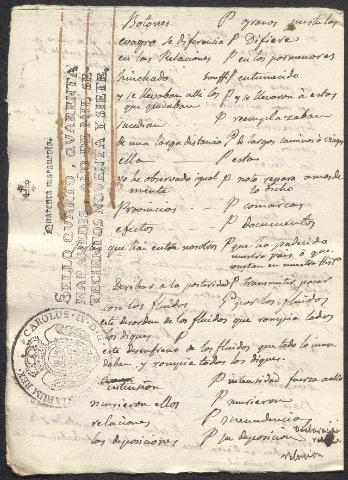 Botones P granos pustulas
evagro se diferencia P Difiere
en las Relaciones P en los pormenores
hinchado P entumecido
y se llevaban alli los P y se llevaron à estos
que quedaban
sucedian P reemplazaban
de una larga distancia P de largos caminos ò viages
ella P esta
yo he observado igual P noto repara a mas de
mente lo dicho
Provincias P comarcas
efectos P documentos
que hai entre nosotros P que ha padecido
nuestro pais, ò que
constan en nuestra
deribar a la posteridad P transmitir, pasar
con los fluidos P por los fluidos
este desorden de los fluidos que rompia todos
los diques P
este desenfreno de los fluidos, que todo lo
daban, y rompia todos los diques.
P intensidad fuerza
murieron ellos P murieron
relaciones P
las deposiciones P la deposicion
relacion
Quarenta maravedis.
SELLO QUARTO, QUARENTA
MARAVEDIS, AÑO DE MIL SE-
TECIENTOS NOVENTA Y SIETE.
CAROLUS IV D.
HISPANIARUM REX